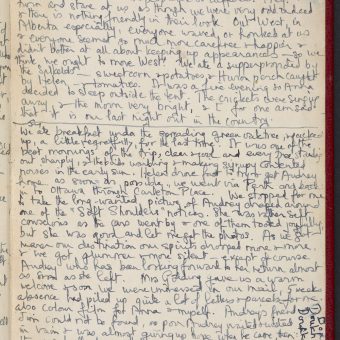 turn and stare at us as though we were very odd indeed
there is nothing friendly in their look. Out West, in
Alberta especially, everyone waved, or honked at us
& everyone seemed so much more carefree & happy, &
didn't bother at all about keeping up appearances - so we
think we ought to move West! We ate a supper provided by
the - sweetcorn & potatoes, & Huron perch caught
by Helen - tomatoes. It was a fine evening so Anna
decided to sleep outside the tent. The crickets were singing
away, & the moon very bright, & I for one am sad
that it is our last night out in the country
We ate breakfast under the spreading green oak tree, & packed
up, a little regretfully, for the last time. It was one of the
best mornings of the trip, clear & cool, and every tree standing
out sharply, & the birds making contented
noises in the early sun. Helen drove fast to get Audrey
home as soon as possible, we went via Perth and back
to Ottawa through Carleton Place. We stopped for me
to take the long wanted picture of Audrey draped along
one of the "Soft Shoulder" notices. She was rather self-
conscious as the cars went by & one of them tooted joyfully
but she was game, and let me get the photos. As we got
nearer our destination our spirits drooped more & more
& we got glummer & more silent, except of course
Audrey who has been looking forward to her return almost
as soon as she left. Mrs gave us a warm
welcome & soon we were immersed in our mail. 5 weeks
absence had piled up quite a lot of letters & parcels for me
also colour film for Anna & myself. Audrey's friend
Jim could not be found, so poor Audrey waited
in vain & was almost giving up hope when he came, then